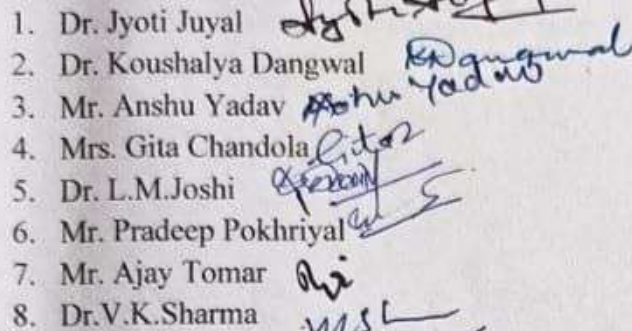 1. Dr. Jyoti Juyal
2. Dr. Koushalya Dangwal KDangwal
3. Mr. Anshu Yadav Anshu Yadav
4. Mrs. Gita Chandola Gita
5. Dr. L.M.Joshi
6. Mr. Pradeep Pokhriyal
7. Mr. Ajay Tomar
8. Dr.V.K.Sharma